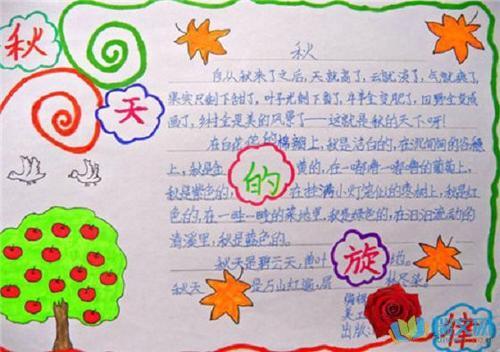 秋
天
的
旋
秋
自从秋来了之后，天就高了，云就淡了，气就爽了，
果实只剩下甜了，叶子光剩下霜了，牛羊全变肥了，田野全变成
画了，乡村全是美的风景了——这就是秋的天下呀！
在白花花的棉朵上，秋是洁白的，在沉甸甸的谷穗
上，秋是金 黄的，在一嘟噜一嘟噜的葡萄上，
秋是紫色的，在挂满小灯笼似的枣树上，秋是红
色的，在一畦一畦的菜地里，秋是绿色的，在汩汩流动的
清溪里，秋是蓝色的。
秋天是碧云天，
秋天 是万山红遍，层 尽染。
出版：